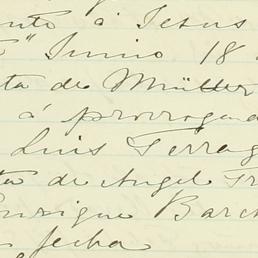 á Jesus
" Junio 18
ta de Müller
á prorrogan
Luis Terra
ta de Angel Fr
Enrique Barc
fecha